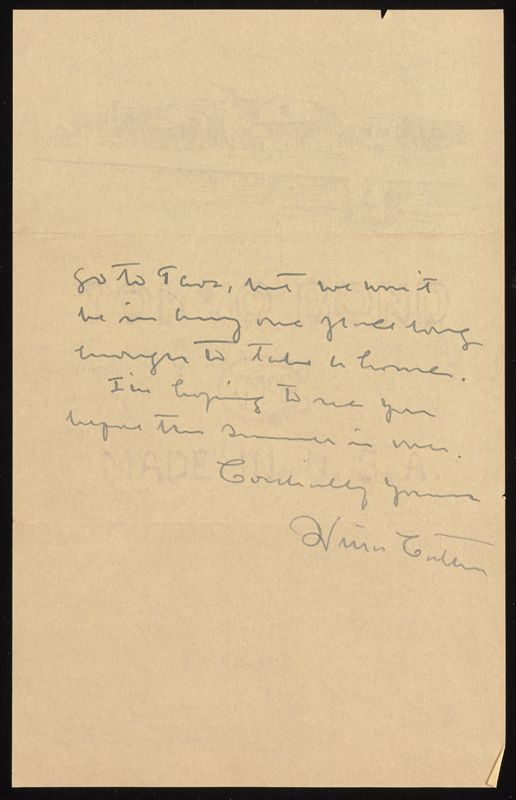 go to Taos, but we won't
be in any one place long
enough to take a house.
I'm hoping to see you
before the summer is over.
Cordially yours
Willa Cather
MADE IN U.S.A.